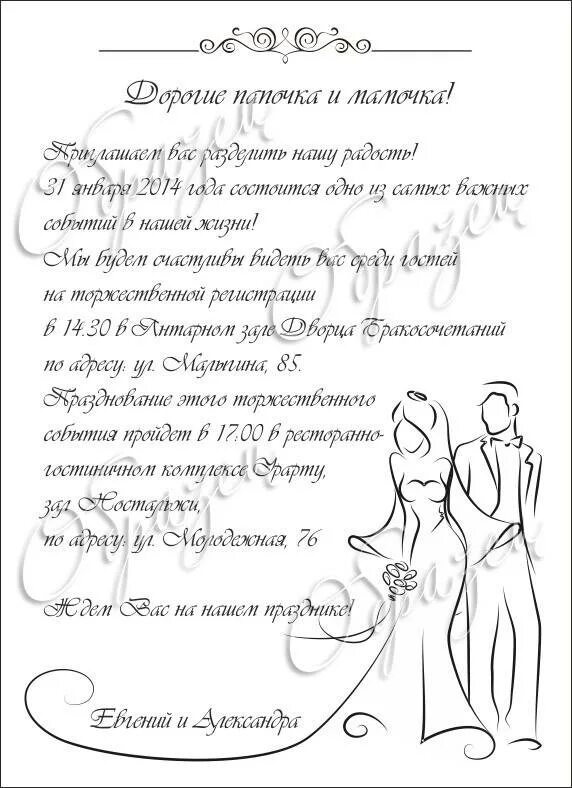 Дорогие папочка и мамочка!
Приглашаем вас разделить нашу радость!
31 января 2014 года состоится одно из самых важных
событий в нашей жизни!
Мы будем счастливы видеть вас среди гостей
на торжественной регистрации
в 14:30 в Янтарном зале Дворца Бракосочетаний
по адресу: ул. Малыгина, 85.
Празднование этого торжественного
события пройдет в 17:00 в ресторанно-
гостиничном комплексе Урарту,
зал Ностальжи,
по адресу: ул. Молодежная, 76
Ждем Вас на нашем празднике!
Евгений и Александра
Образец
Образец
Образец
Образец